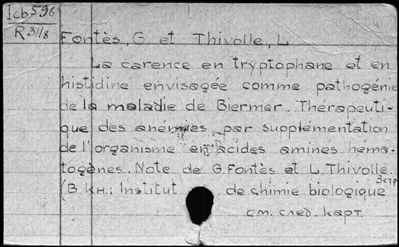 Icb596
R 31/8
Fontès, G et Thivolle, L
La carence en tryptophane et en
histidine envisagée comme pathogénie
de la maladie de Biermer. Thérapeuti-
que des anémies par supplémentation
de l'organisme en acides amines héma-
togènes. Note de G. Fontès et L. Thivolle.
3стр
(В кн.: Institut de chimie biologique
см. след. карт.